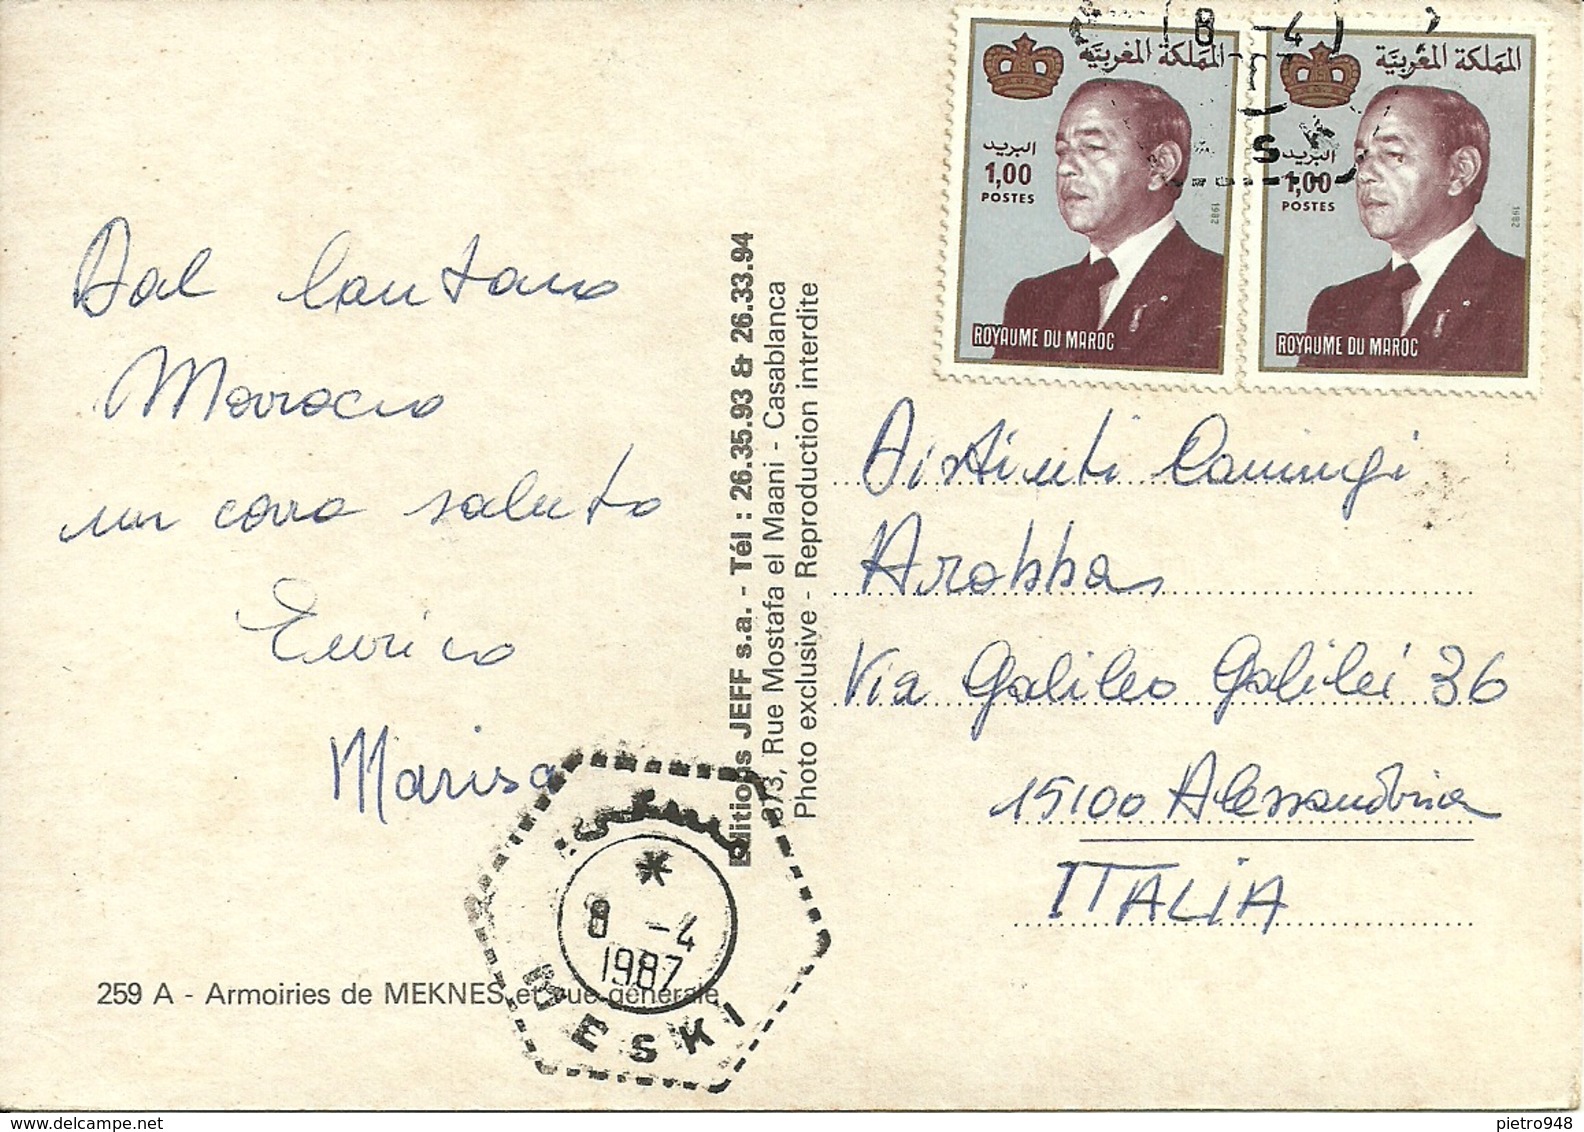 8 -4
المملكة المغربية
البريد
1,00
POSTES
1982
ROYAUME DU MAROC
المملكة المغربية
البريد
1,00
POSTES
1982
ROYAUME DU MAROC
S
Dal lontano
Marocco
un caro saluto
Enrico
Marisa
Editions JEFF s.a. - Tél : 26.35.93 & 26.33.94
373, Rue Mostafa el Maani - Casablanca
Photo exclusive - Reproduction interdite
Distinti Coniugi
Arobba
Via Galileo Galilei 36
15100 Alessandria
ITALIA
مسكي
*
8 -4
1987
MESKI
259 A - Armoiries de MEKNES et vue générale
pietro948